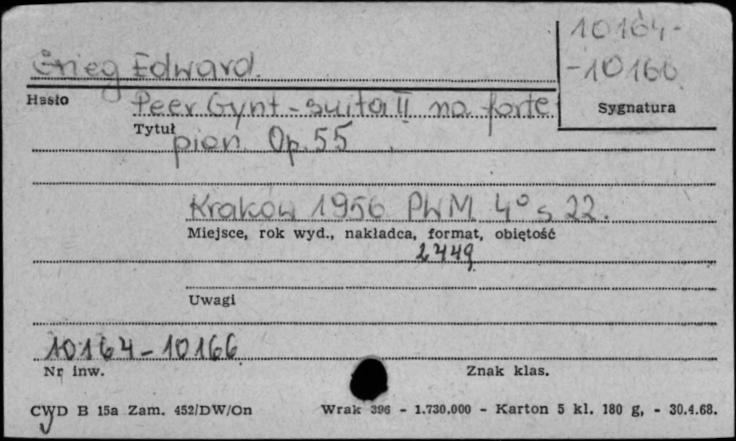 10164-
Grieg Edward.
-10166
Hasło
Peer Gynt - suita II na forte
Sygnatura
Tytuł
pian Op. 55
Kraków 1956 PWM 4° s 22.
Miejsce, rok wyd., nakładca, format, obiętość
2449
Uwagi
10164-10166
Nr inw.
Znak klas.
CWD B 15a Zam. 452/DW/On
Wrak 396 - 1.730.000 - Karton 5 kl. 180 g, - 30.4.68.